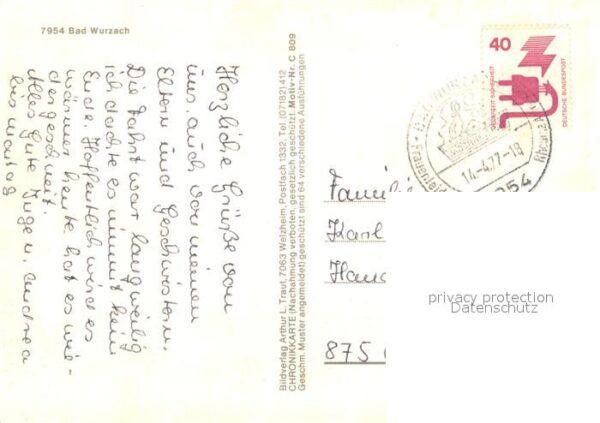 7954 Bad Wurzach
Herzliche Grüße von
uns auch von meinen
Eltern und Geschwistern.
Die Fahrt war langweilig
ich dachte es nimmt kein
Ende. Hoffentlich wird es
wärmer heute hat es wie-
der geschneit.
Alles Gute Inge u. Andrea
bis Montag
Bildverlag Arthur L. Traut, 7063 Welzheim, Postfach 1332, Tel. (07182) 412
CHRONIKKARTE (Nachahmung verboten, gesetzlich geschützt. Motiv-Nr. C 809
Geschm. Muster angemeldet) geschützt sind 64 verschiedene Ausführungen
40
JEDERZEIT SICHERHEIT
DEUTSCHE BUNDESPOST
14.-4.77-18
7954
Familie
Karl
875
privacy protection
Datenschutz